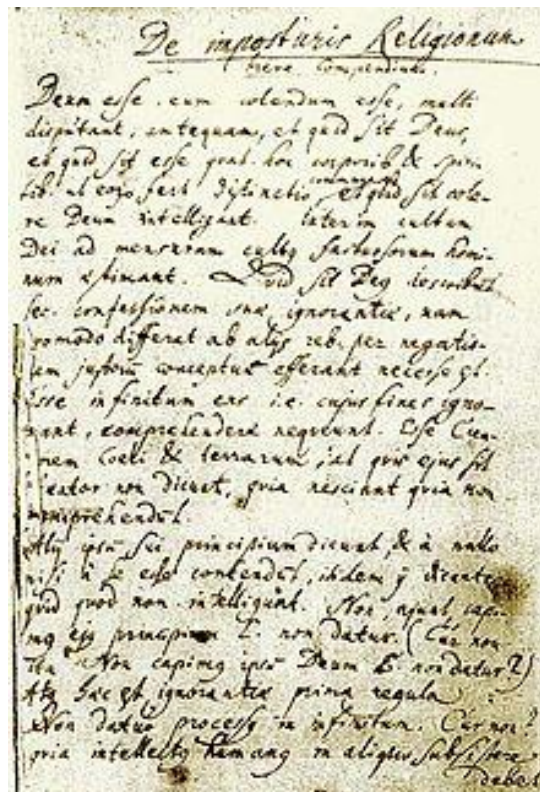 De imposturis Religionum
breve Compendium.
Deum esse, eum colendum esse, multi
disputant, antequam, et quid sit Deus,
et quid sit esse, quat. hoc corporib. & spiri-
tib. ut eorum fert distinctio, commune est, et quid sit cole-
re Deum intelligant. Interim cultum
Dei ad mensuram cultq fastuosorum homi-
num estimant. Quid sit Deq describunt
sec. confessionem suae ignorantiae, nam
quomodo differat ab alijs reb. per negatio-
nem conceptus efferant necesse est.
Esse infinitum ens i.e. cujus fines igno-
rant, comprehendere nequeunt. Esse Crea-
torem Coeli & terrarum, et quis ejus sit
Creator non dicunt, quia nesciunt quia non
comprehendunt.
Alij ipsum sui principium dicunt, & à nullo
nisi à se esse contendunt, itidem dicentes
quid quod non intelligunt. Non, ajunt, capi-
mq ejq principium E. non datur. (Cur non
ita Non capimq ipsum Deum E. non datur?)
Atq haec est ignorantiae prima regula
Non datur processq in infinitum. Cur non?
quia intellectq humanq in aliquo subsistere
debet